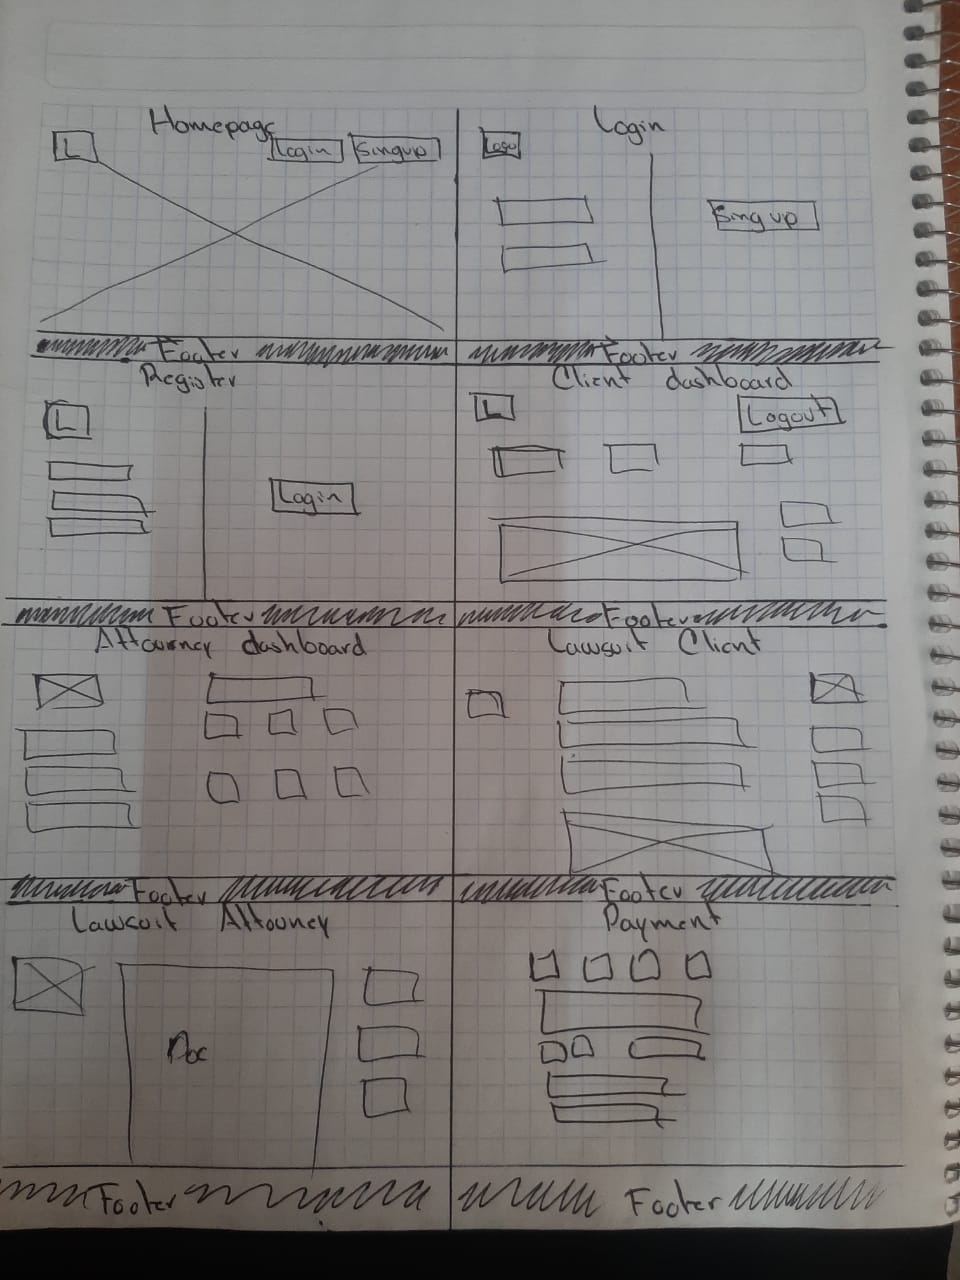 Homepage
L
Login
Singup
Footer
Login
Logo
Sing up
Footer
Register
L
Login
Footer
Client dashboard
L
Logout
Footer
Attourney dashboard
Footer
Lawsuit Client
Footer
Lawsuit Attourney
Doc
Footer
Payment
Footer